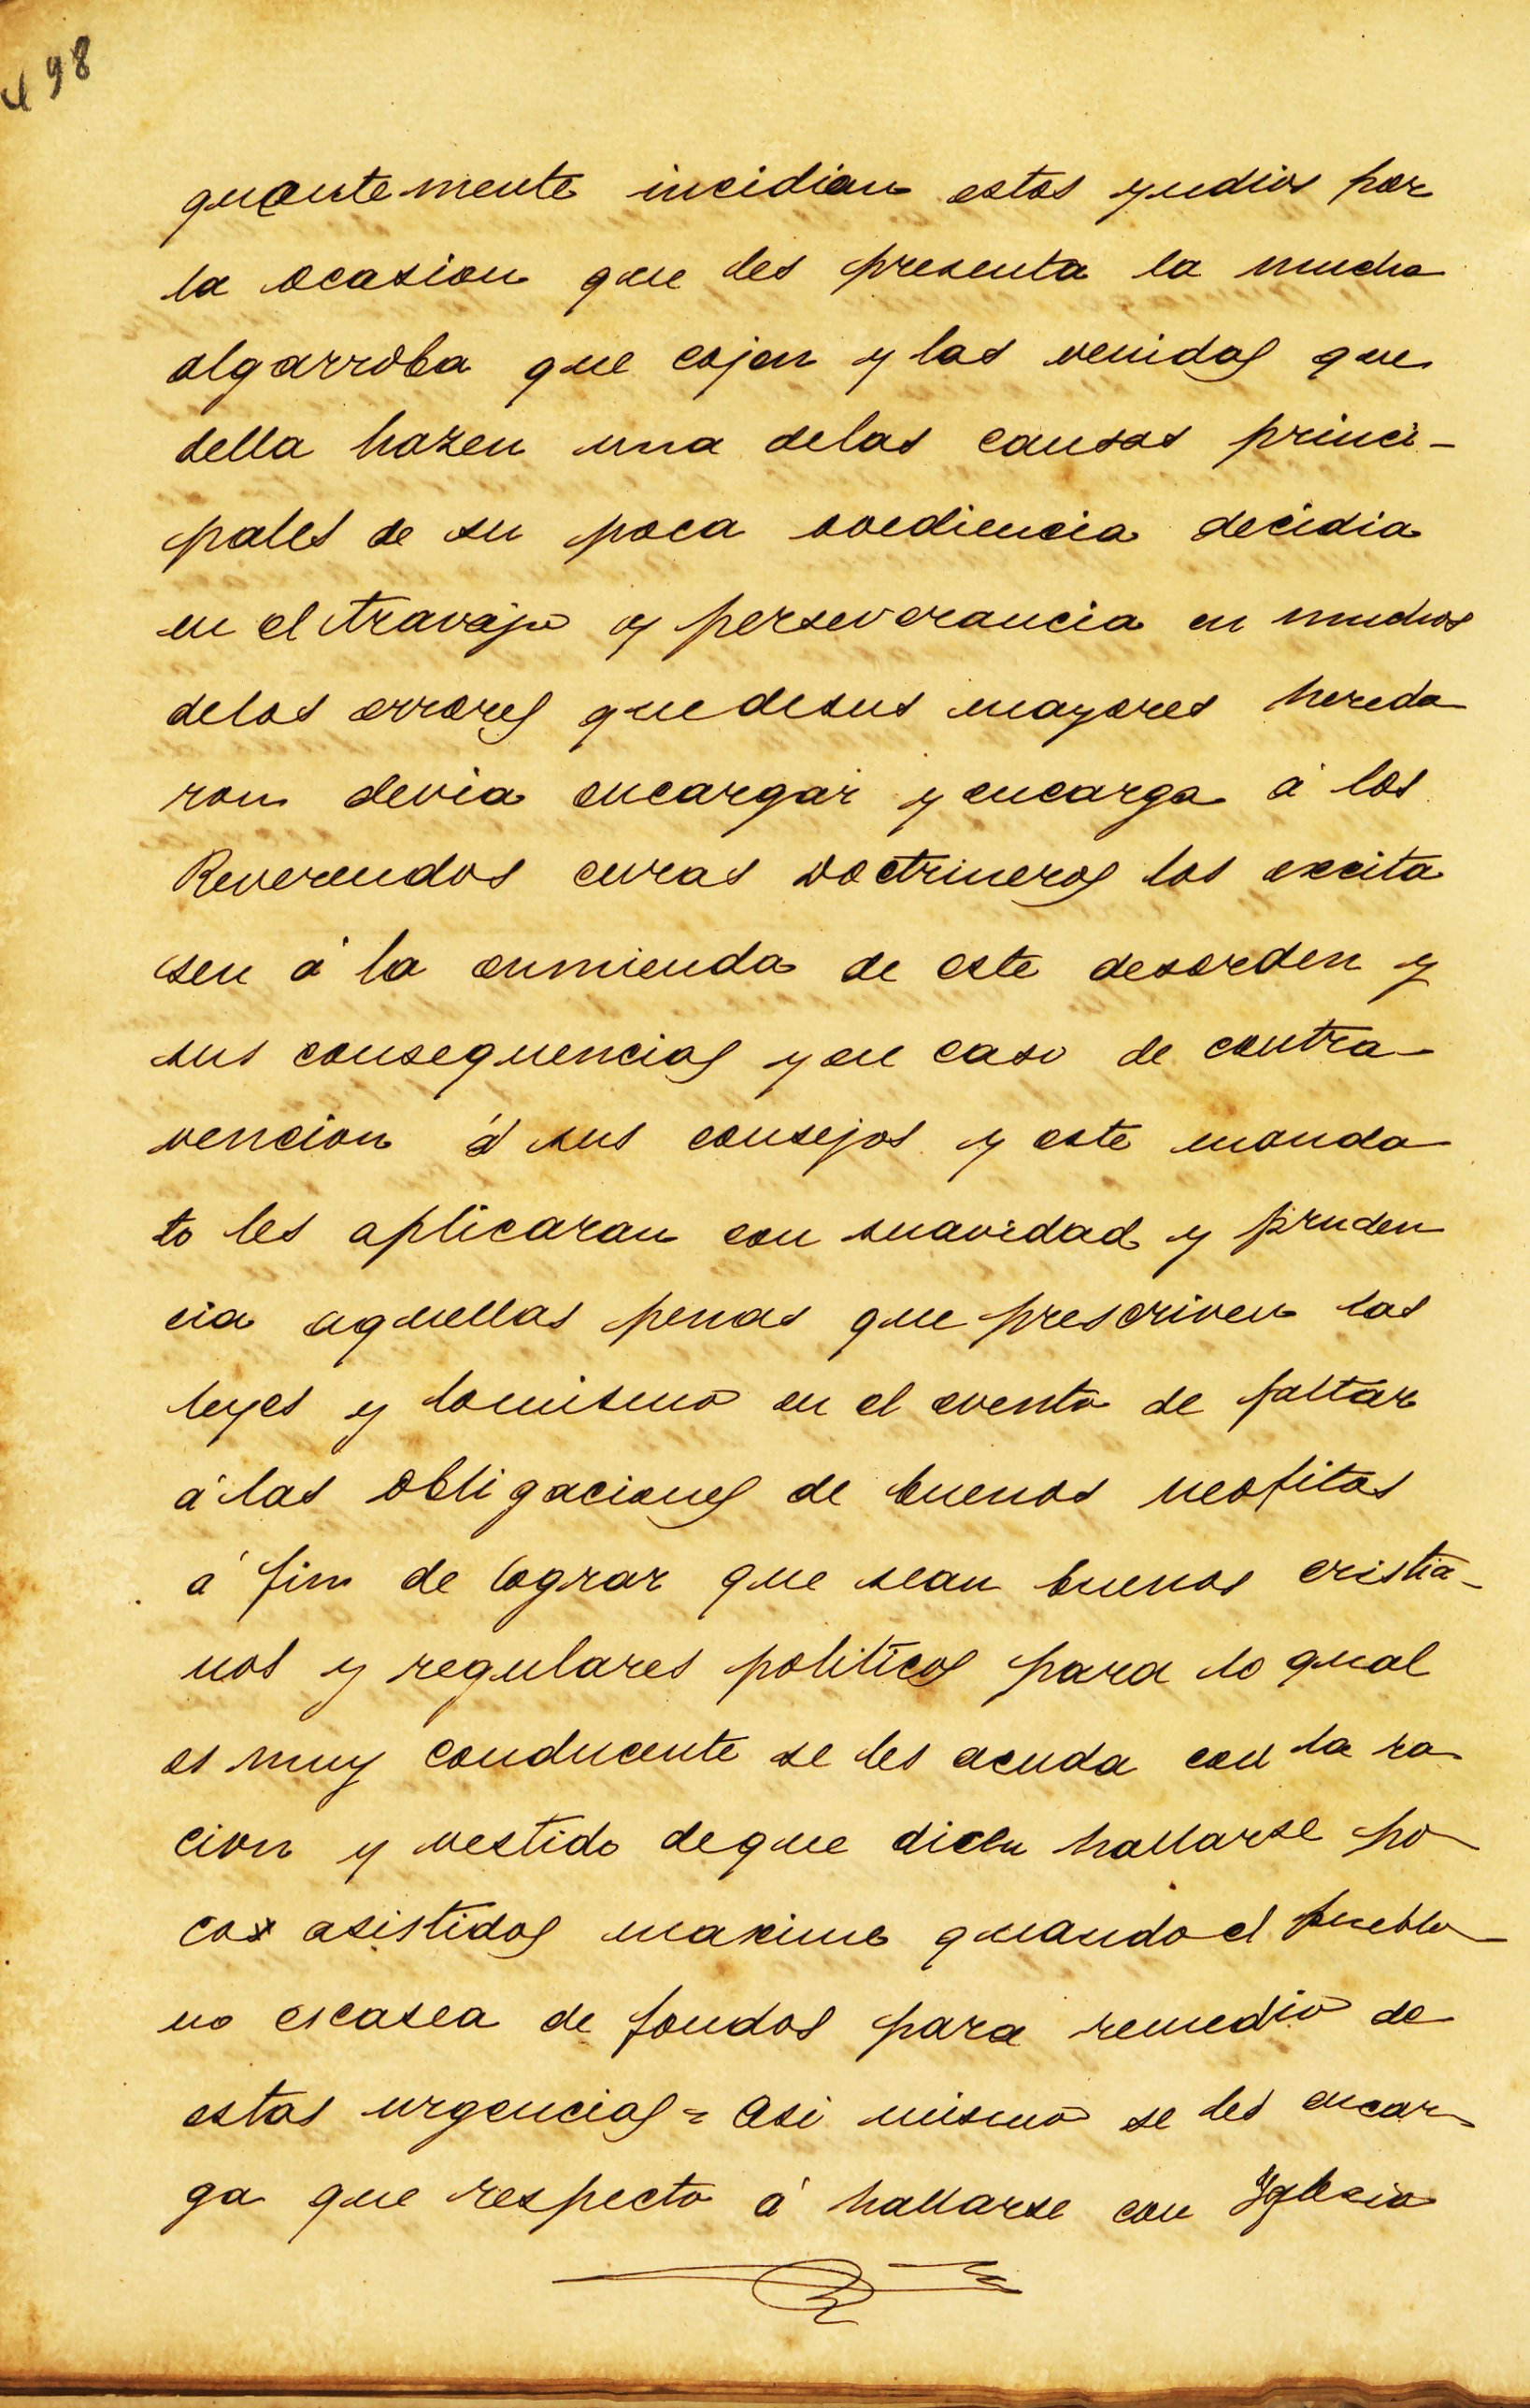 498
quentemente incidian estos yndios por
la ocasion que les presenta la mucha
algarroba que cojen y las venidas que
della hazen una delas causas princi-
pales de su poca ovediencia decidia
en el travajo y perseverancia en muchos
delos errores que desus mayores hereda
ron devia encargar y encarga á los
Reverendos curas Doctrineros los excita
sen á la enmienda de este desorden y
sus consequencias y en caso de contra-
vencion á sus consejos y este manda
to les aplicaran con suavidad y pruden
cia aquellas penas que prescriven las
leyes y lomismo en el evento de faltar
á las obligaciones de buenos neofitos
á fin de lograr que sean buenos cristia-
nos y regulares politicos para lo qual
es muy conducente se les acuda con la ra
cion y vestido deque dicen hallarse po
cos asistidos maxime quando el pueblo
no escasea de fondos para remedio de
estas urgencias = Asi mismo se les encar
ga que respecto á hallarse con Yglesia